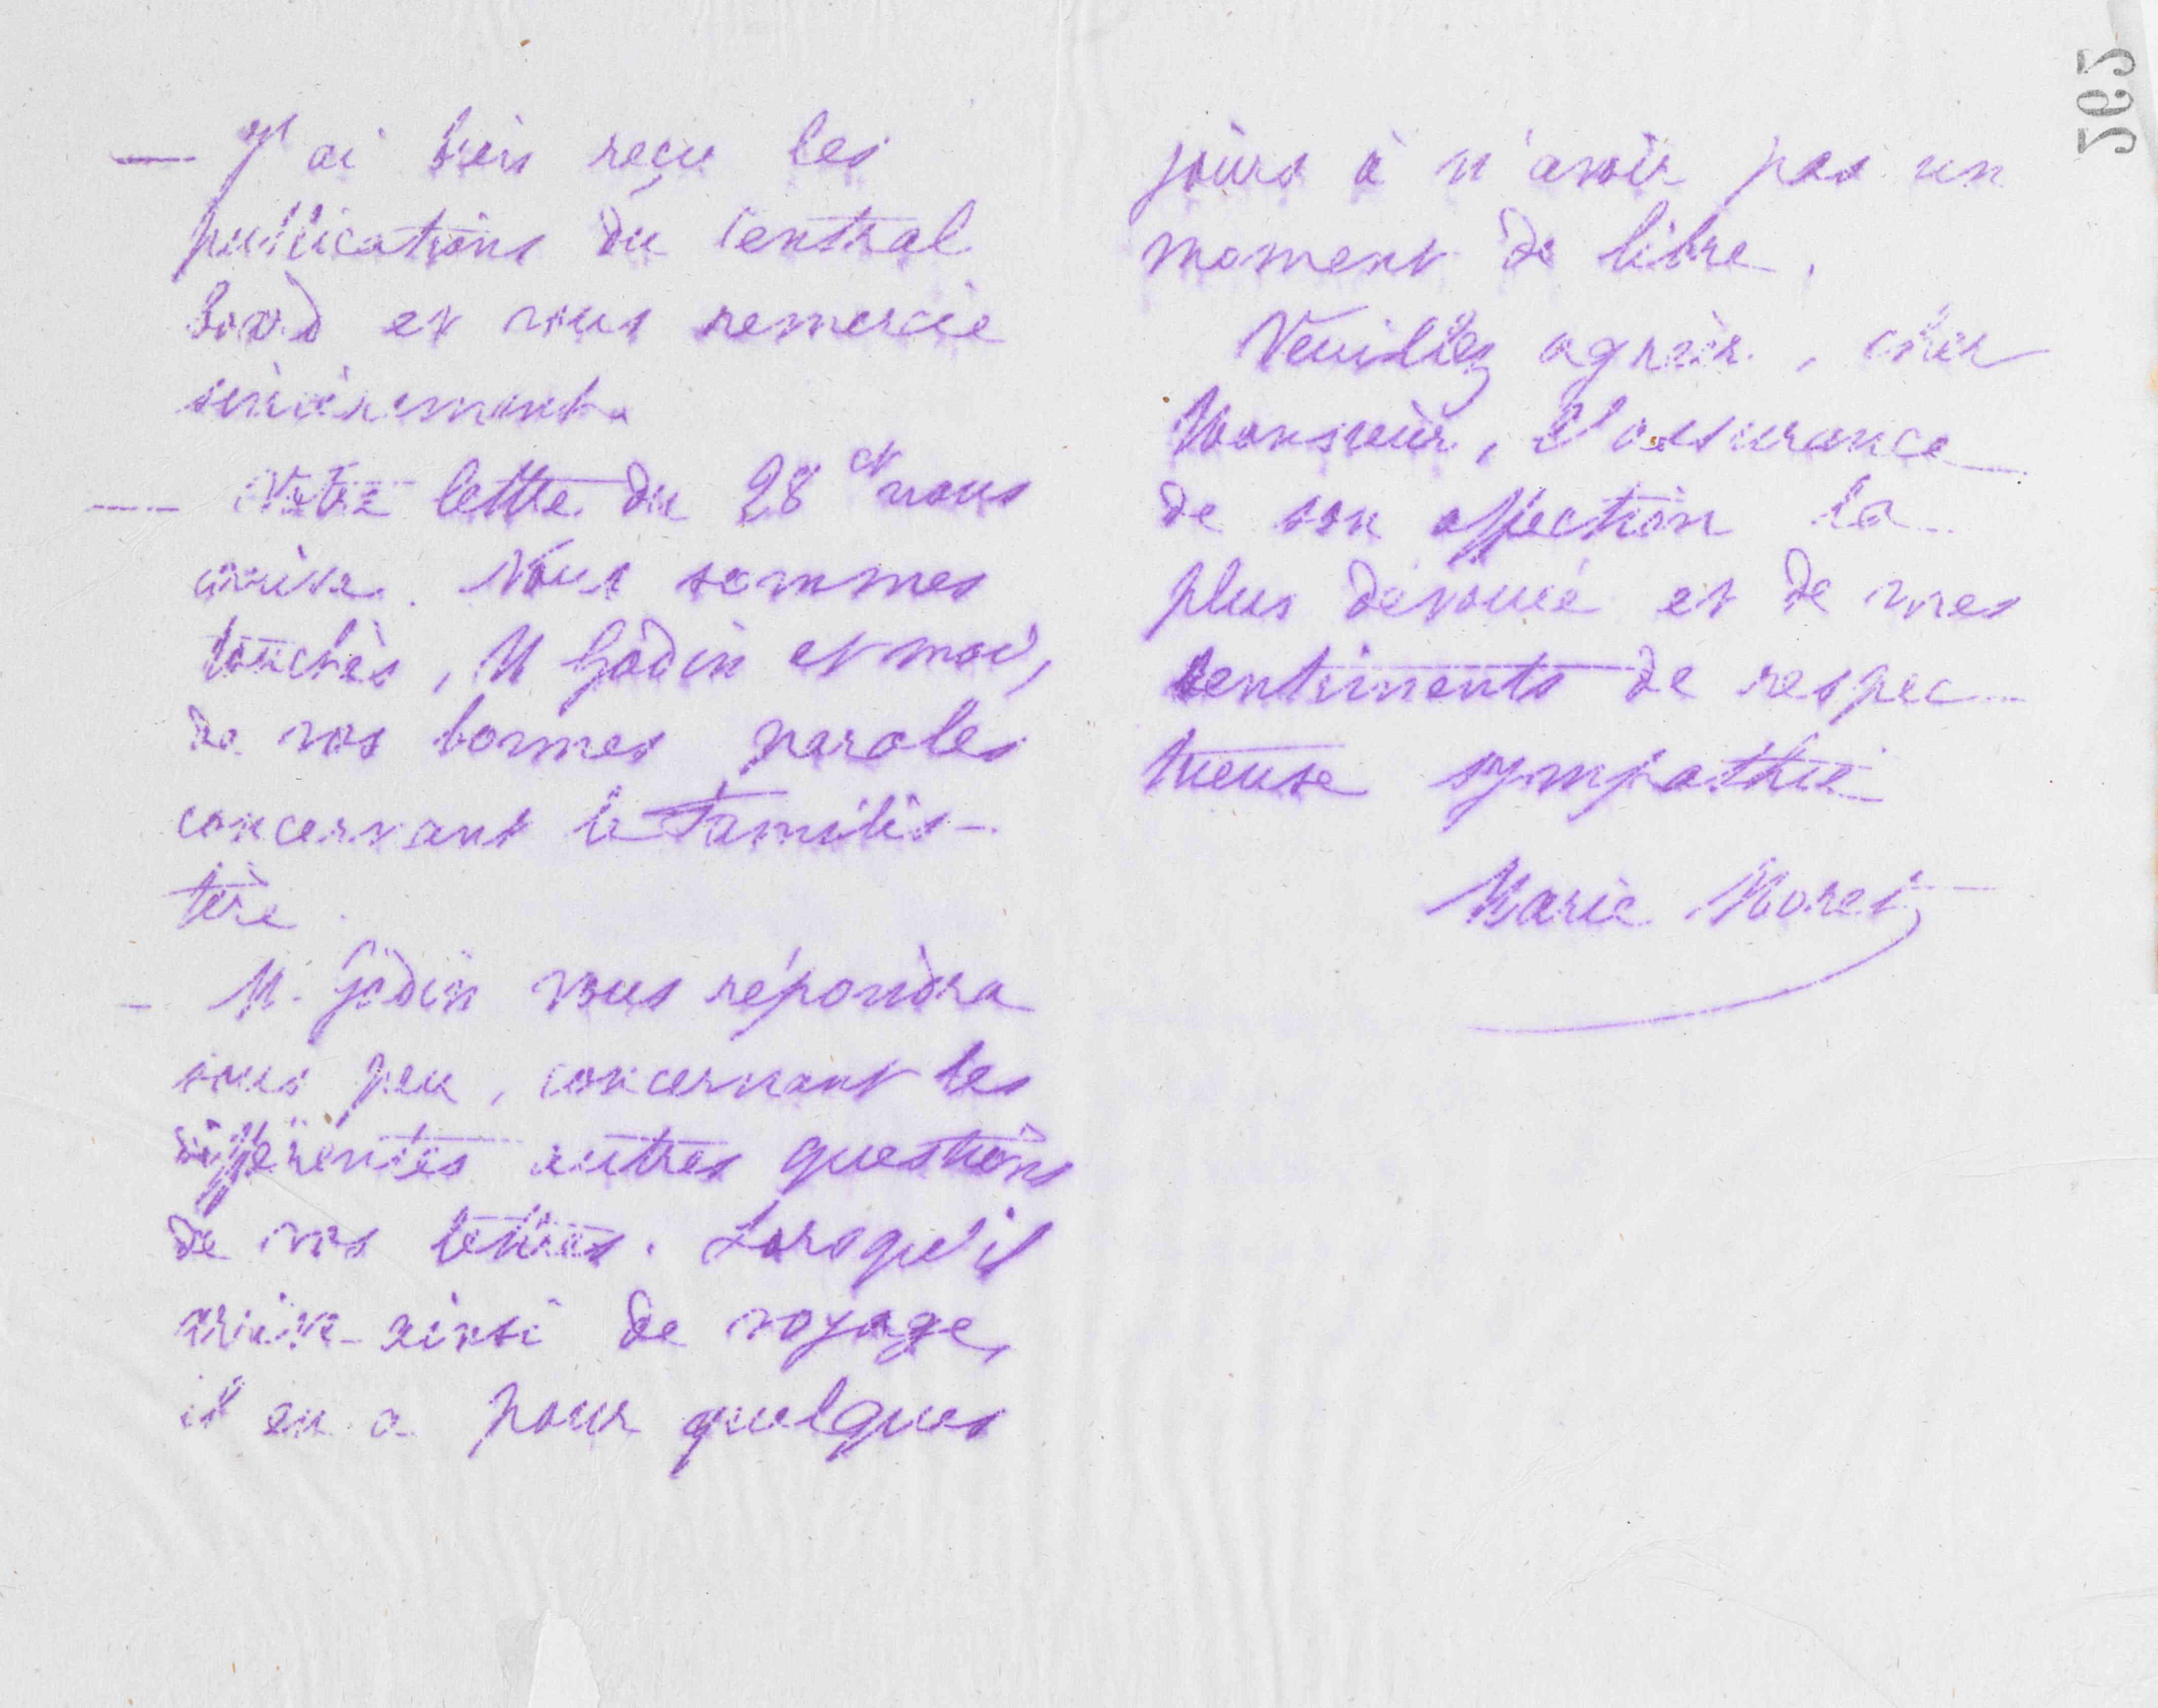 — J'ai bien reçu les
publications du Central
Board et vous remercie
sincèrement.
— Votre lettre du 28 ct nous
arrive. Nous sommes
touchés, M Godin et moi,
de vos bonnes paroles
concernant le Familis-
tère.
- M. Godin vous répondra
sous peu, concernant les
différentes autres questions
de vos lettres. Lorsqu'il
arrive ainsi de voyage,
il en a pour quelques
jours à n'avoir pas un
moment de libre.
Veuillez agréer, cher
Monsieur, l'assurance
de son affection la
plus dévouée et de mes
sentiments de respec-
tueuse sympathie
Marie Moret
565